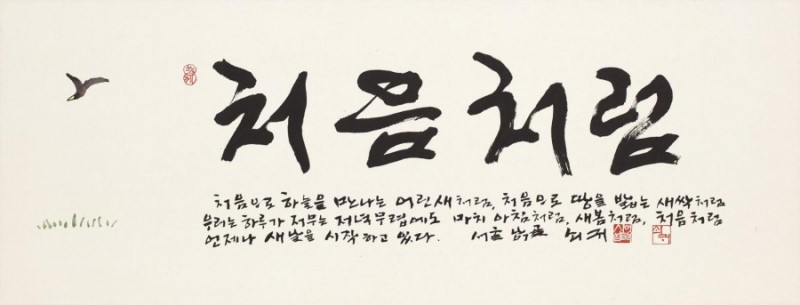 처음처럼
처음으로 하늘을 만나는 어린새처럼, 처음으로 땅을 밟는 새싹처럼
우리는 하루가 저무는 저녁무렵에도 마치 아침처럼, 새봄처럼, 처음처럼
언제나 새날을 시작하고 있다.